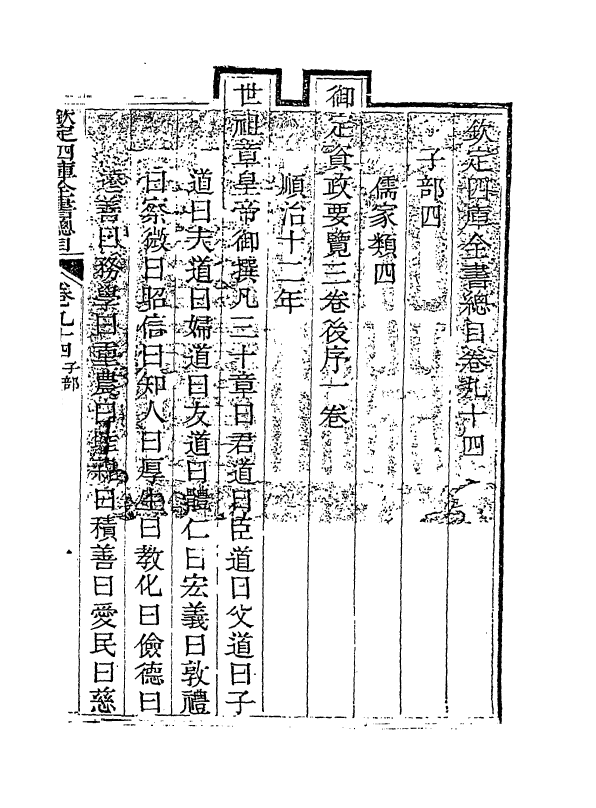 欽定四庫全書總目卷九十四
子部四
儒家類四
御定資政要覽三卷後序一卷
順治十二年
世祖章皇帝御撰凡三十章曰君道曰臣道曰父道曰子
道曰夫道曰婦道曰友道曰體仁曰宏義曰敦禮
曰察微曰昭信曰知人曰厚生曰教化曰儉德曰
遷善曰務學曰重農曰睦親曰積善曰愛民曰慈
欽定四庫全書總目
卷九十四 子部